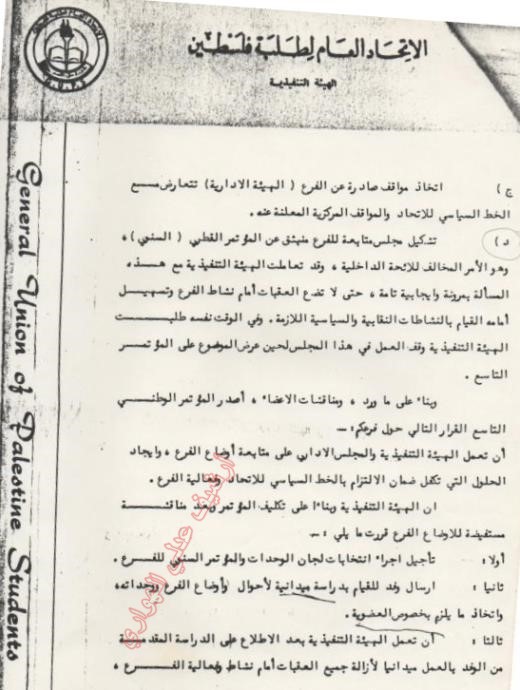 الاتحاد العام لطلبة فلسطين
الهيئة التنفيذية
General Union of Palestine Students
ج) اتخاذ مواقف صادرة عن الفرع (الهيئة الادارية) تتعارض مع
الخط السياسي للاتحاد والمواقف المركزية المعلنة عنه.
د) تشكيل مجلس متابعة للفرع منبثق عن المؤتمر القطبي (السنوي)،
وهو الأمر المخالف للائحة الداخلية، وقد تعاملت الهيئة التنفيذية مع هذه
المسألة بمرونة وايجابية تامة، حتى لا تضع العقبات أمام نشاط الفرع وتسهيل
أمامه القيام بالنشاطات النقابية والسياسية اللازمة. وفي الوقت نفسه طلبت
الهيئة التنفيذية وقف العمل في هذا المجلس لحين عرض الموضوع على المؤتمر
التاسع.
وبناء على ما ورد، ومناقشات الاعضاء، أصدر المؤتمر الوطني
التاسع القرار التالي حول فرعكم :-
أن تعمل الهيئة التنفيذية والمجلس الاداري على متابعة أوضاع الفرع، وايجاد
الحلول التي تكفل ضمان الالتزام بالخط السياسي للاتحاد وفعالية الفرع.
ان الهيئة التنفيذية وبناءا على تكليف المؤتمر وبعد مناقشة
مستفيضة للاوضاع الفرع قررت ما يلي :-
أولا: تأجيل اجراء انتخابات لجان الوحدات والمؤتمر السنوي للفرع.
ثانيا: ارسال وفد للقيام بدراسة ميدانية لأحوال وأوضاع الفرع ووحداته،
واتخاذ ما يلزم بخصوص العضوية.
ثالثا: أن تعمل الهيئة التنفيذية بعد الاطلاع على الدراسة المقدمة
من الوفد بالعمل ميدانيا لأزالة جميع العقبات أمام نشاط وفعالية الفرع،
ارشيف عدلي الهواري